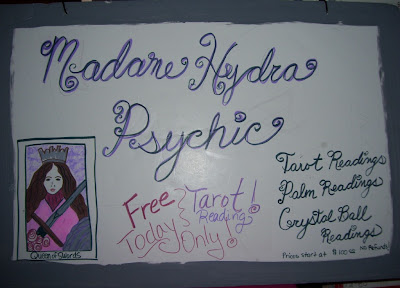 Madame Hydra
Psychic
Tarot Readings
Palm Readings
Crystal Ball
Readings
Prices start at
No Refunds
Free Tarot!
Reading
Today Only!
Queen of Swords